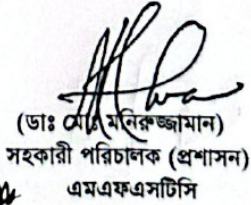 (ডাঃ মোঃ মনিরুজ্জামান)
সহকারী পরিচালক (প্রশাসন)
এমএফএসটিসি